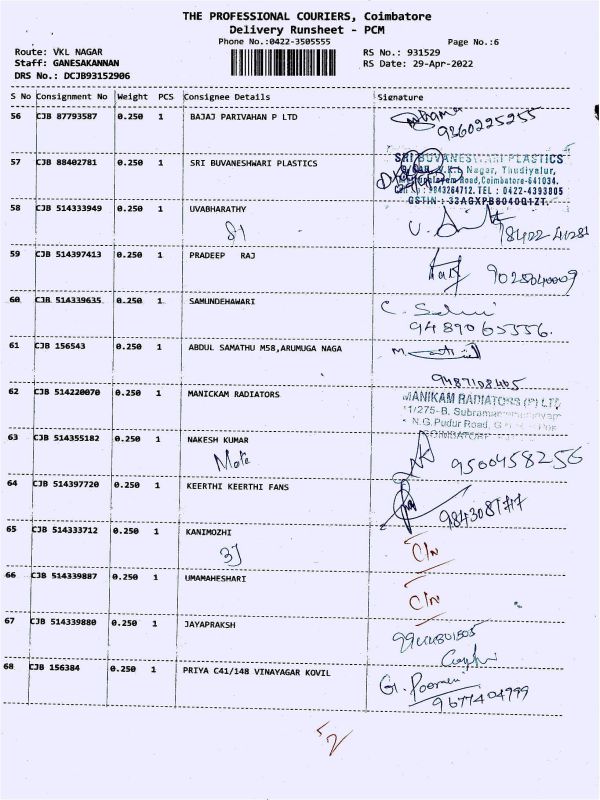 THE PROFESSIONAL COURIERS, Coimbatore
Delivery Runsheet - PCM
Phone No.:0422-3505555 Page No.:6
Route: VKL NAGAR RS No.: 931529
Staff: GANESAKANNAN RS Date: 29-Apr-2022
DRS No.: DCJB93152906
S No Consignment No Weight PCS Consignee Details Signature
56 CJB 87793587 0.250 1 BAJAJ PARIVAHAN P LTD
9360225255
57 CJB 88402781 0.250 1 SRI BUVANESHWARI PLASTICS
SRI BUVANESHWARI PLASTICS
V.K.L Nagar, Thudiyalur,
Road, Coimbatore-641034.
Cell No : 9843264712. TEL : 0422-4393805
GSTIN : 33AGXPB8040Q1ZT.
58 CJB 514333949 0.250 1 UVABHARATHY
59 CJB 514397413 0.250 1 PRADEEP RAJ
9025040009
60 CJB 514339635 0.250 1 SAMUNDEHAWARI
C. Selvi
9489065556.
61 CJB 156543 0.250 1 ABDUL SAMATHU M58,ARUMUGA NAGA
9487108405
62 CJB 514220070 0.250 1 MANICKAM RADIATORS
MANIKAM RADIATORS (P) LTD
11/275-B, Subramaniampalayam
N.G.Pudur Road,
COIMBATORE
63 CJB 514355182 0.250 1 NAKESH KUMAR
9500458256
64 CJB 514397720 0.250 1 KEERTHI KEERTHI FANS
65 CJB 514333712 0.250 1 KANIMOZHI
C/N
66 CJB 514339887 0.250 1 UMAMAHESHARI
C/N
67 CJB 514339880 0.250 1 JAYAPRAKSH
68 CJB 156384 0.250 1 PRIYA C41/148 VINAYAGAR KOVIL
G. Poorni
9677404999